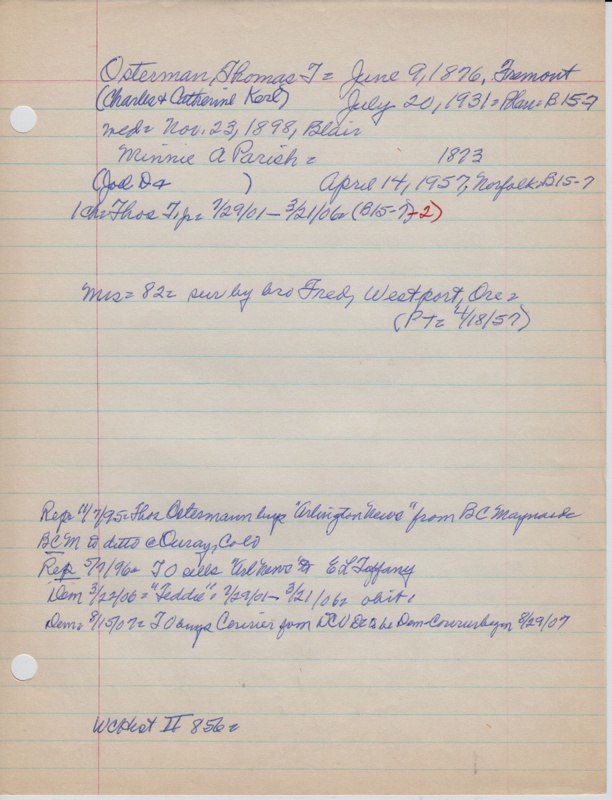 Osterman, Thomas T = June 9, 1876, Fremont
(Charles & Catherine Kerl) July 20, 1931 = Blair = B15-7
med = Nov. 23, 1898, Blair
Minnie A Parish = 1873
(Joel D & ) April 14, 1957, Norfolk = B15-7
1 ch = Thos T, jr = 7/29/01 - 3/21/06 = (B15-7)-2)
Mrs = 82 = sur by bro Fred, Westport, Ore =
(PT = 4/18/57)
Rep = 11/7/95 = Thos Ostermann buys "Arlington News" from BC Maynard =
BCM to ditto @ Ouray, Colo
Rep 5/7/96 = TO sells "Arl News" to E L Tiffany
Dem 3/22/06 = "Teddie" = 7/29/01 - 3/21/06 = obit =
Dem = 8/15/07 = TO buys Courier from to be Dem-Courier 8/29/07
WCHist II 856 =